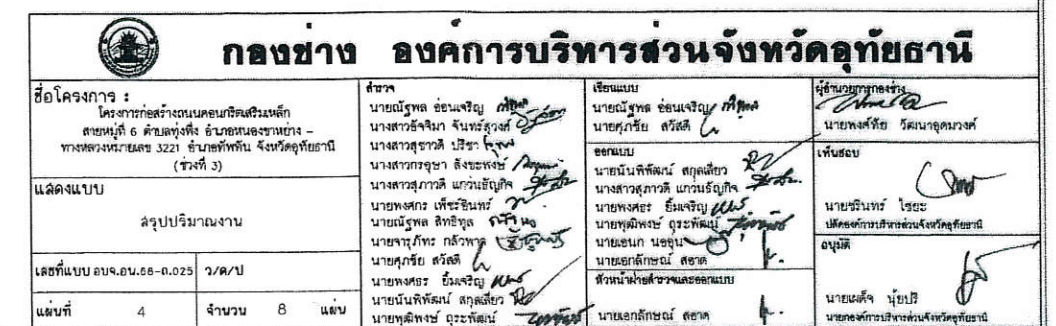 กองช่าง องค์การบริหารส่วนจังหวัดอุทัยธานี
ชื่อโครงการ :
โครงการก่อสร้างถนนคอนกรีตเสริมเหล็ก
สายหมู่ที่ 6 ตำบลทุ่งพึ่ง อำเภอหนองขาหย่าง –
ทางหลวงหมายเลข 3221 อำเภอทัพทัน จังหวัดอุทัยธานี
(ช่วงที่ 3)
แสดงแบบ
สรุปปริมาณงาน
เลขที่แบบ อบจ.อน.66-ถ.025 ว/ด/ป
แผ่นที่ 4 จำนวน 8 แผ่น
สำรวจ
นายณัฐพล อ่อนเจริญ
นางสาวอัจจิมา จันทร์สุวงศ์
นางสาวสุชาวดี ปรีชา
นางสาวกรอุษา สังขะพงษ์
นางสาวสุภาวดี แก่นธัญกิจ
นายพงศกร เพ็ชรอินทร์
นายณัฐพล สิทธิทูล
นายจารุภัทร กลัวพาล
นายศุภชัย สวัสดี
นายพงศธร ยิ้มเจริญ
นายนันพิพัฒน์ สกุลเสียว
นายพุฒิพงษ์ ถุระพัฒน์
เขียนแบบ
นายณัฐพล อ่อนเจริญ
นายศุภชัย สวัสดี
ออกแบบ
นายนันพิพัฒน์ สกุลเสียว
นางสาวสุภาวดี แก่นธัญกิจ
นายพงศธร ยิ้มเจริญ
นายพุฒิพงษ์ ถุระพัฒน์
นายเอนก นออุ่น
นายเอกลักษณ์ สอาด
หัวหน้าฝ่ายสำรวจและออกแบบ
นายเอกลักษณ์ สอาด
ผู้อำนวยการกองช่าง
นายพงศ์ทัย วัฒนาอุดมวงศ์
เห็นชอบ
นายชรินทร์ ไชยะ
ปลัดองค์การบริหารส่วนจังหวัดอุทัยธานี
อนุมัติ
นายเผด็จ นุ้ยปรี
นายกองค์การบริหารส่วนจังหวัดอุทัยธานี